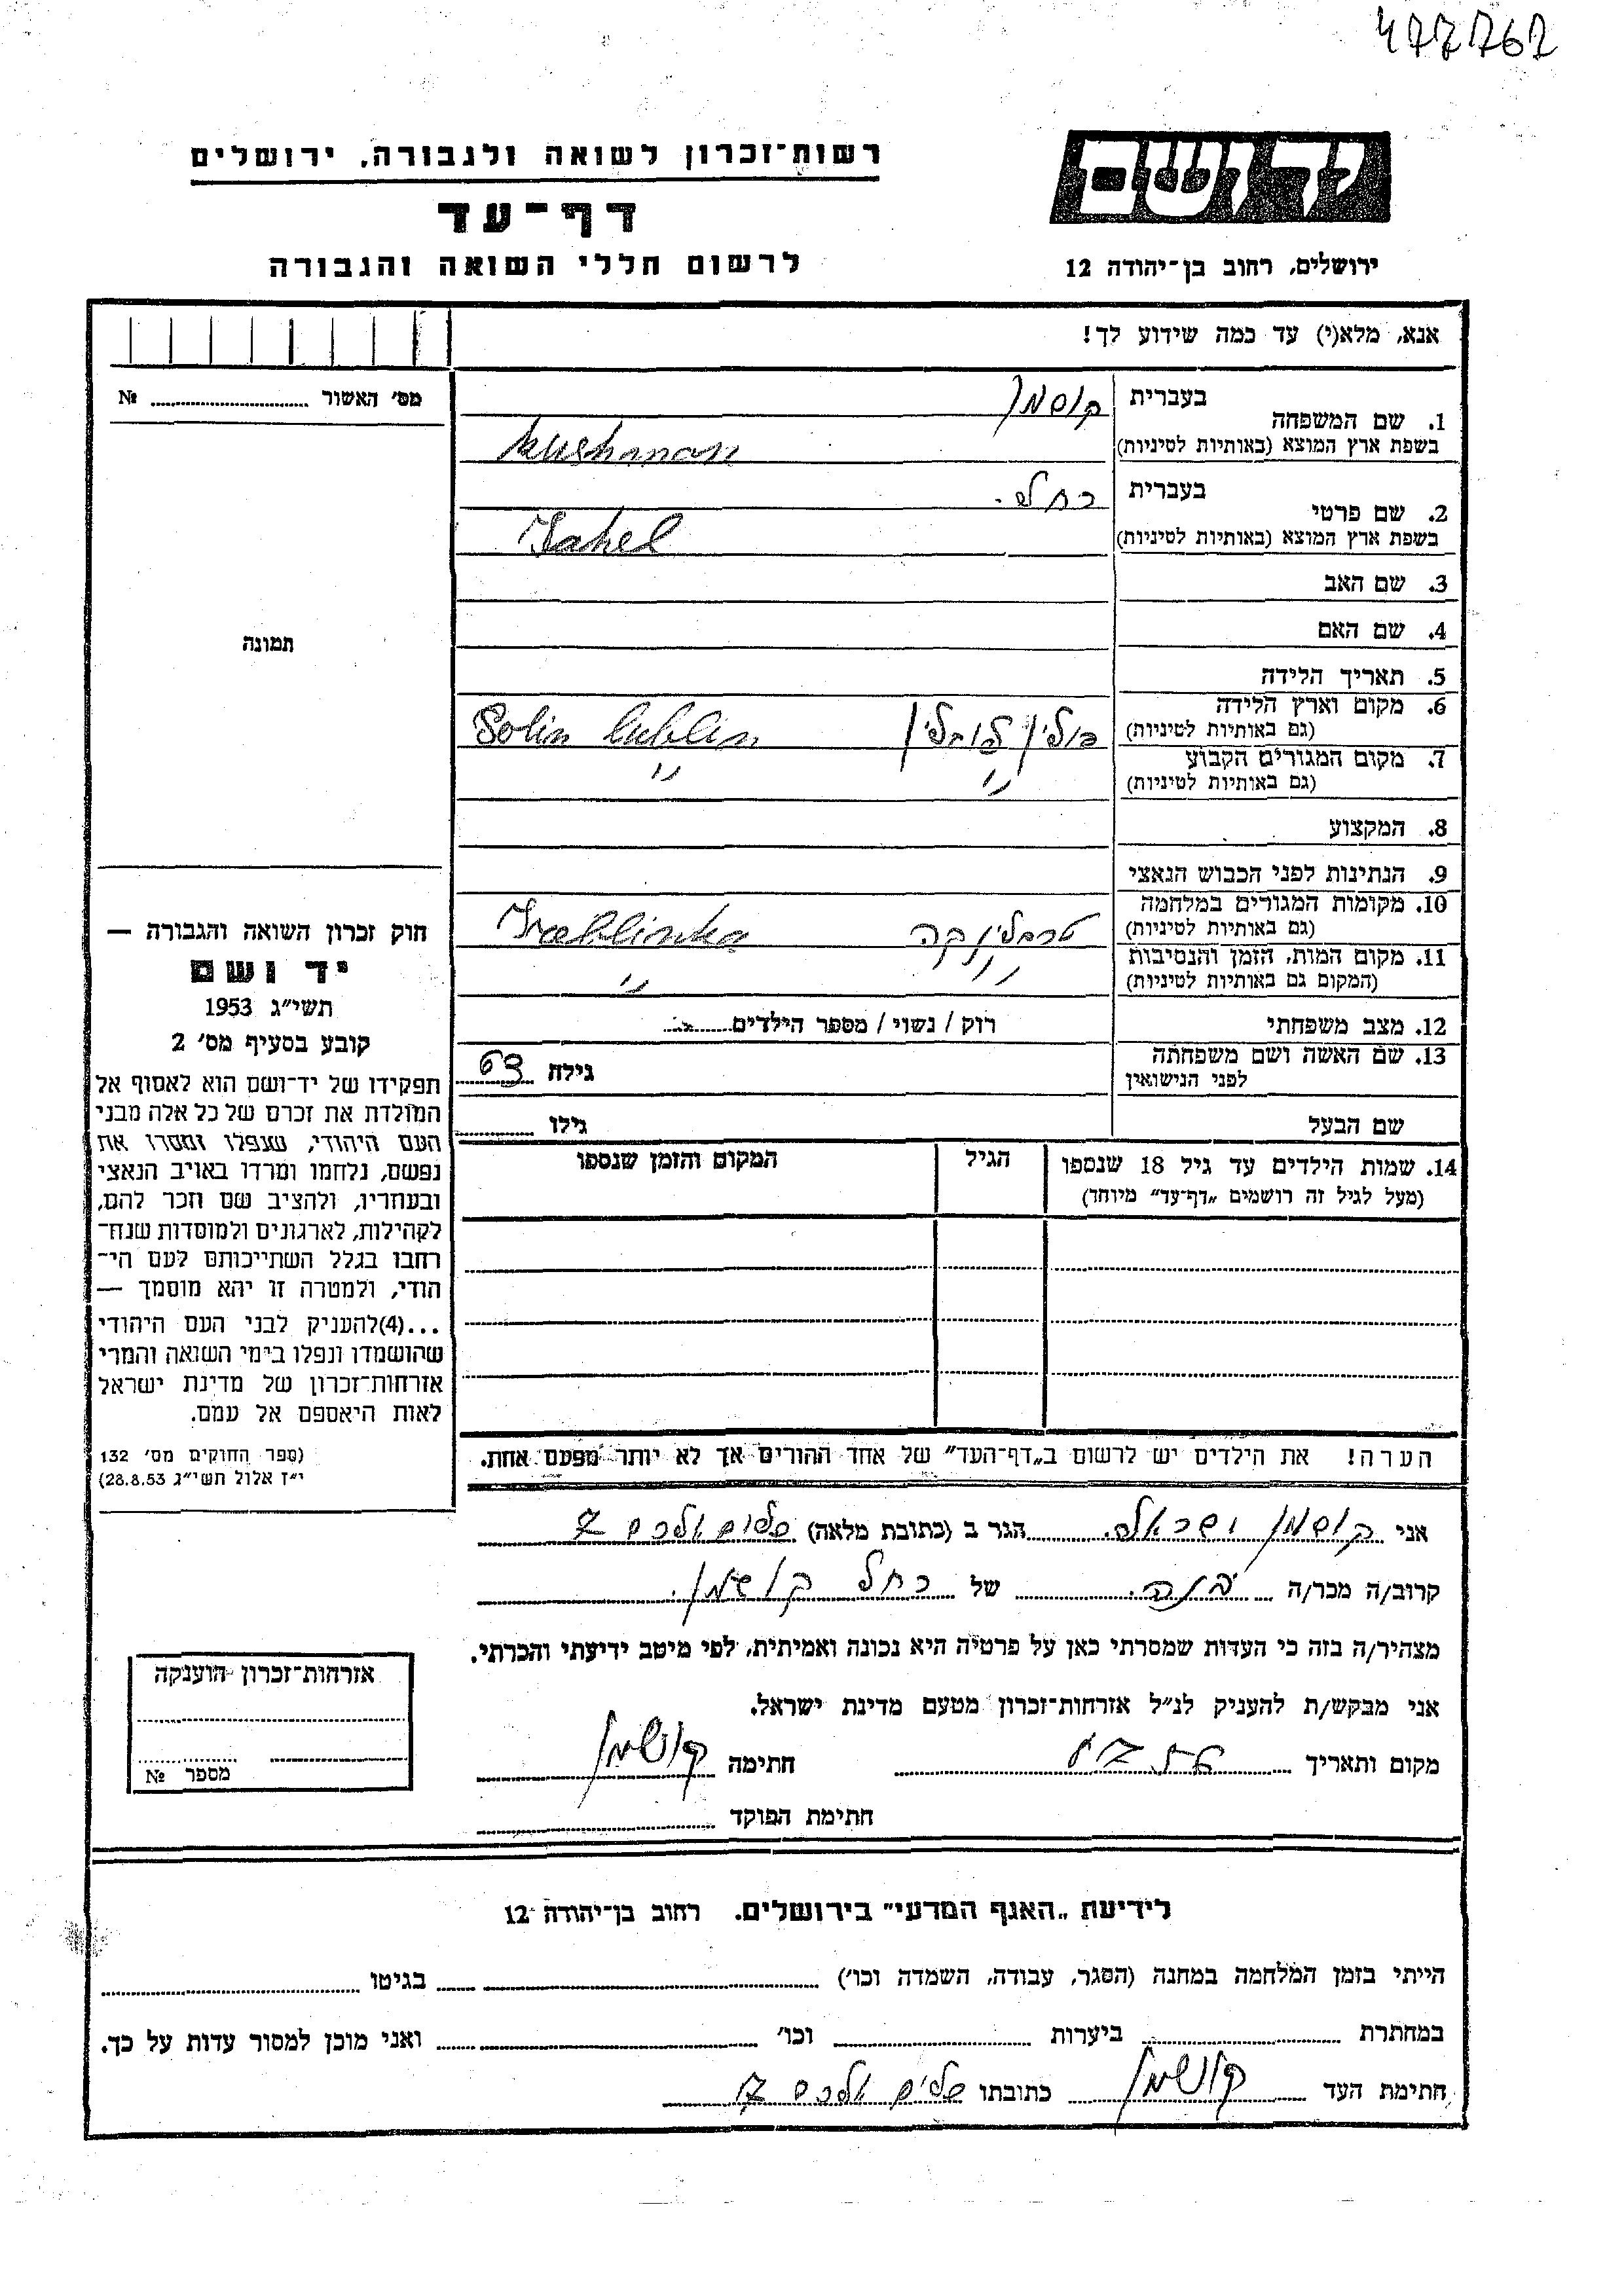 477762
רשות־זכרון לשואה ולגבורה, ירושלים
דף־עד
לרשום חללי השואה והגבורה
יד ושם
ירושלים, רחוב בן־יהודה 12
אנא, מלא(י) עד כמה שידוע לך!
מס׳ האשור №
1. שם המשפחה בעברית קושמן
בשפת ארץ המוצא (באותיות לטיניות) Kushman
2. שם פרטי בעברית רחל.
בשפת ארץ המוצא (באותיות לטיניות) Rahel
3. שם האב
4. שם האם
תמונה
5. תאריך הלידה
6. מקום וארץ הלידה
(גם באותיות לטיניות) פולין לובלין Polin lublin
7. מקום המגורים הקבוע
(גם באותיות לטיניות) " "
8. המקצוע
9. הנתינות לפני הכבוש הנאצי
10. מקומות המגורים במלחמה
(גם באותיות לטיניות) טרבלינקה Treblinka
11. מקום המות, הזמן והנסיבות
(המקום גם באותיות לטיניות) " "
12. מצב משפחתי רוק / נשוי / מספר הילדים
13. שם האשה ושם משפחתה
לפני הנישואין גילה 63
שם הבעל גילו
14. שמות הילדים עד גיל 18 שנספו הגיל המקום והזמן שנספו
(מעל לגיל זה רושמים „דף־עד” מיוחד)
הערה! את הילדים יש לרשום ב„דף־העד” של אחד ההורים אך לא יותר מפעם אחת.
חוק זכרון השואה והגבורה —
יד ושם
תשי״ג 1953
קובע בסעיף מס׳ 2
תפקידו של יד־ושם הוא לאסוף אל
המולדת את זכרם של כל אלה מבני
העם היהודי, שנפלו ומסרו את
נפשם, נלחמו ומרדו באויב הנאצי
ובעוזריו, ולהציב שם וזכר להם,
לקהילות, לארגונים ולמוסדות שנח־
רבו בגלל השתייכותם לעם הי־
הודי, ולמטרה זו יהא מוסמך —
...(4)להעניק לבני העם היהודי
שהושמדו ונפלו בימי השואה והמרי
אזרחות־זכרון של מדינת ישראל
לאות היאספם אל עמם.
(ספר החוקים מס׳ 132
י״ז אלול תשי״ג 28.8.53)
אני קושמן ישראל. הגר ב (כתובת מלאה) שלום עליכם 7
קרוב/ה מכר/ה של רחל קושמן.
מצהיר/ה בזה כי העדות שמסרתי כאן על פרטיה היא נכונה ואמיתית, לפי מיטב ידיעתי והכרתי.
אני מבקש/ת להעניק לנ״ל אזרחות־זכרון מטעם מדינת ישראל.
מקום ותאריך חתימה קושמן
חתימת הפוקד
אזרחות־זכרון הוענקה
מספר №
לידיעת „האגף המדעי” בירושלים. רחוב בן־יהודה 12
הייתי בזמן המלחמה במחנה (הסגר, עבודה, השמדה וכו׳) בגיטו
במחתרת ביערות וכו׳ ואני מוכן למסור עדות על כך.
חתימת העד קושמן כתובתו שלום עליכם 7